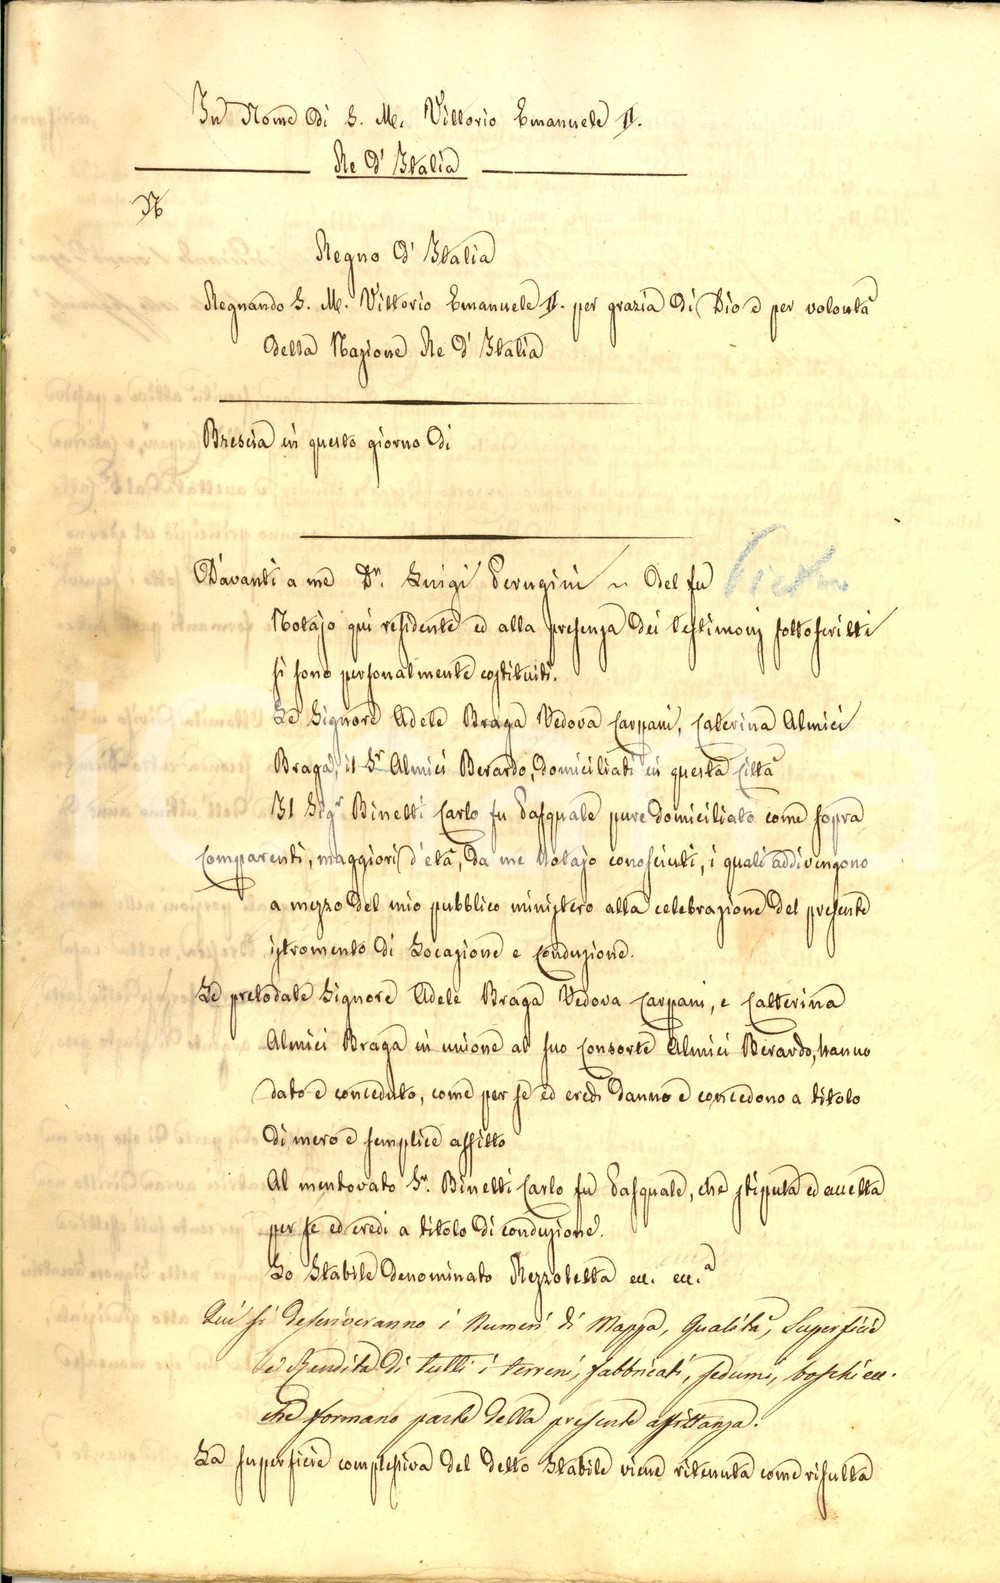 In Nome di S. M. Vittorio Emanuele II.
Re d' Italia
N
Regno d' Italia
Regnando S. M. Vittorio Emanuele II. per grazia di Dio e per volontà
della Nazione Re d' Italia
Brescia in questo giorno di
Davanti a me Dr. Luigi Perugini del fu
Notajo qui residente ed alla presenza dei testimonj sottoscritti
si sono personalmente costituiti.
Le Signore Adele Braga Vedova Carpani, Caterina Almici
Braga, il Sr Almici Berardo, domiciliati in questa Città
Il Sigr Binetti Carlo fu Pasquale pure domiciliato come sopra
Comparenti, maggiori d'età, da me Notajo conosciuti, i quali addivengono
a mezzo del mio pubblico ministero alla celebrazione del presente
istromento di Locazione e Conduzione.
Le prelodate Signore Adele Braga Vedova Carpani, e Catterina
Almici Braga in unione al suo Consorte Almici Berardo, hanno
dato e conceduto, come per se ed eredi danno e concedono a titolo
di mero e semplice affitto
Al mentovato Sr. Binetti Carlo fu Pasquale, che stipula ed accetta
per se ed eredi a titolo di conduzione.
Lo Stabile denominato Rezzoletta ec. ec.a
Qui si descriveranno i Numeri di Mappa, Qualità, Superficie
e Rendita di tutti i terreni, fabbricati, sedumi, boschi ec.
che formano parte della presente affittanza.
La superficie complessiva del detto Stabile viene ritenuta come risulta